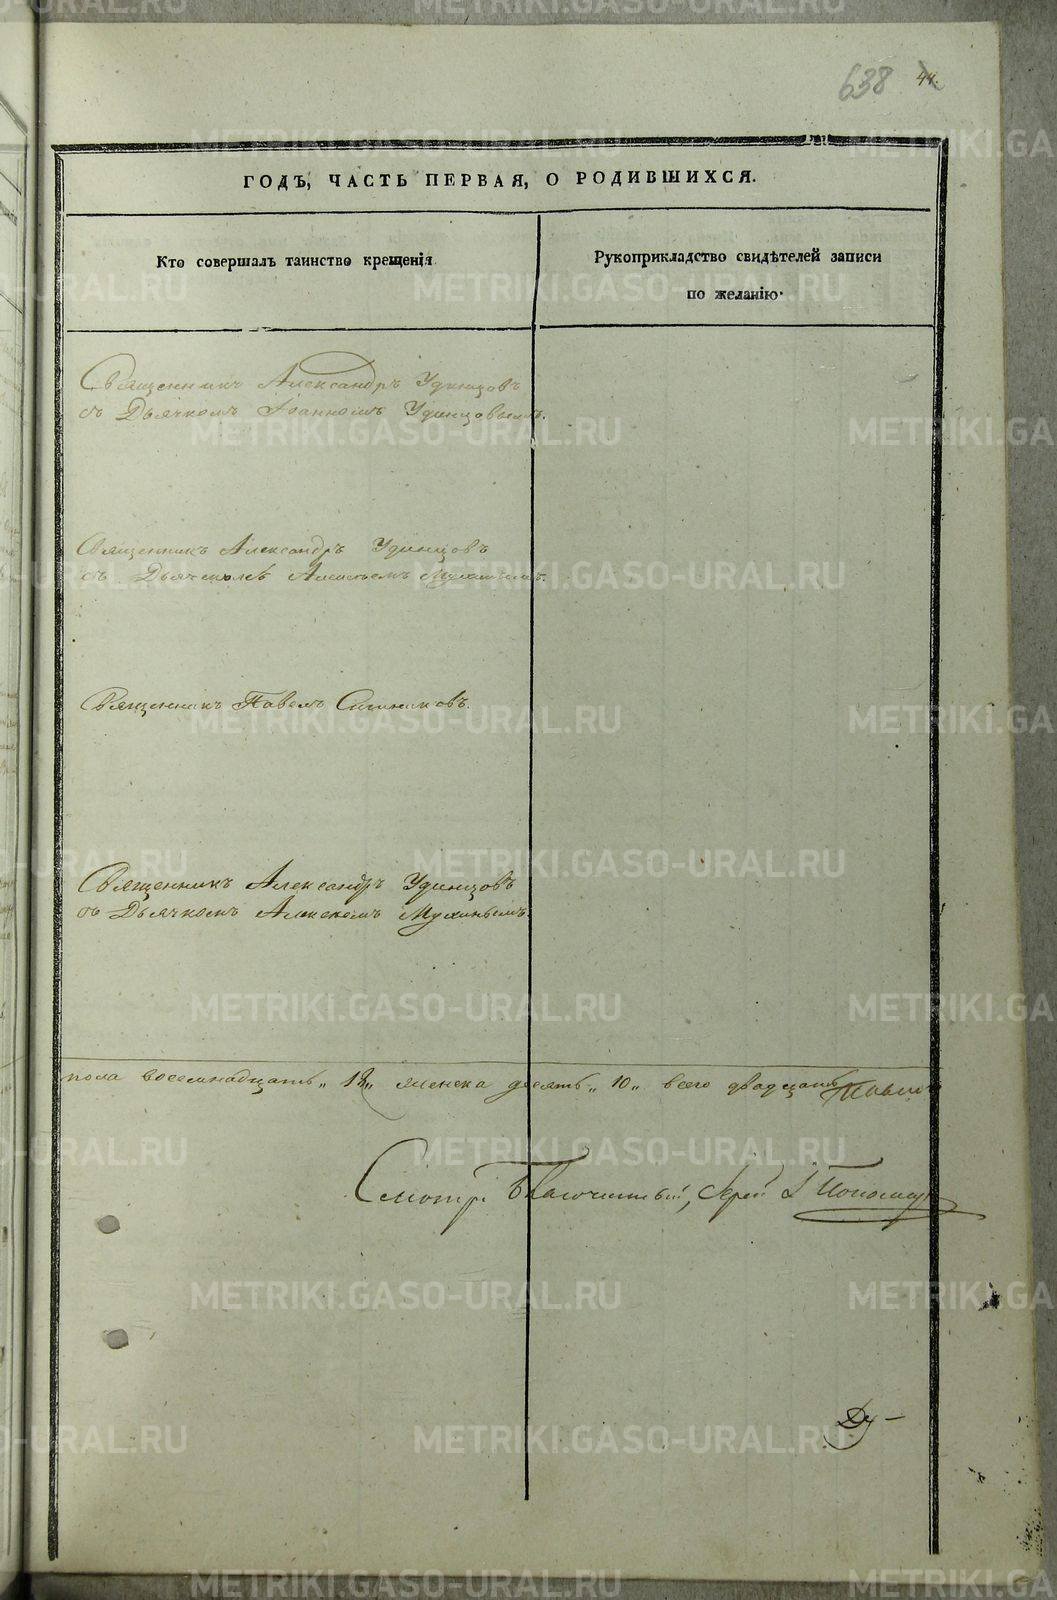 638 44.
ГОДЪ, ЧАСТЬ ПЕРВАЯ, О РОДИВШИХСЯ.
Кто совершалъ таинство крещенія
Рукоприкладство свидѣтелей записи
по желанію.
Священникъ Александръ Удинцовъ
съ Дьячкомъ Іоанномъ Удинцовымъ.
Священникъ Александръ Удинцовъ
съ Дьячкомъ Алексѣемъ Мухинымъ.
Священникъ Павелъ
Священникъ Александръ Удинцовъ
съ Дьячкомъ Алексѣемъ Мухинымъ.
пола восемнадцать „18„ женска десять „10„ всего двадцать
Смотр. Благочинный, Іерей І Пономар
METRIKI.GASO-URAL.RU